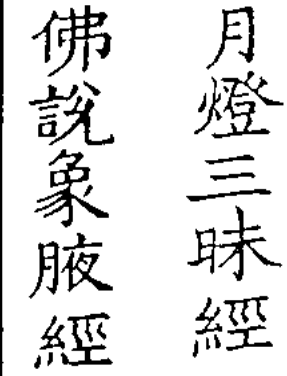 月燈三昧經
佛說象腋經